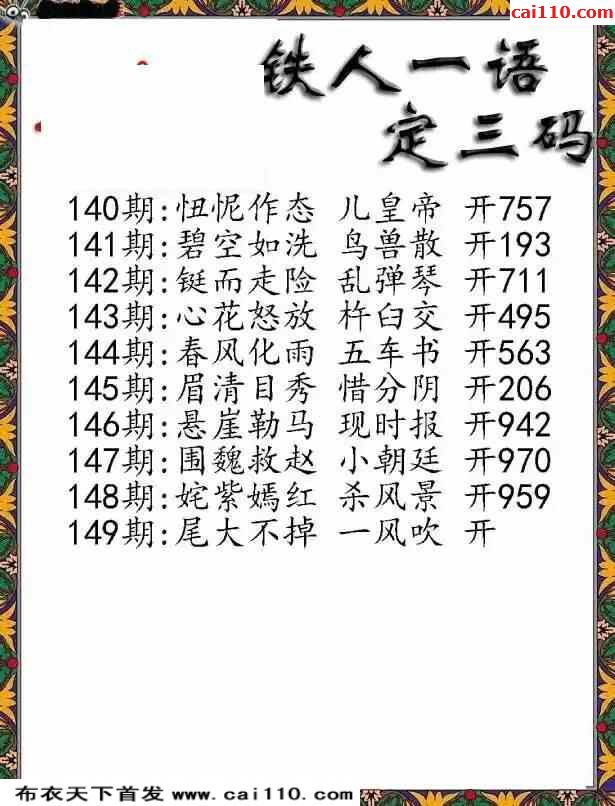 cai110.com
铁人一语
定三码
140期:忸怩作态 儿皇帝 开757
141期:碧空如洗 鸟兽散 开193
142期:铤而走险 乱弹琴 开711
143期:心花怒放 杵臼交 开495
144期:春风化雨 五车书 开563
145期:眉清目秀 惜分阴 开206
146期:悬崖勒马 现时报 开942
147期:围魏救赵 小朝廷 开970
148期:姹紫嫣红 杀风景 开959
149期:尾大不掉 一风吹 开
布衣天下首发 www.cai110.com